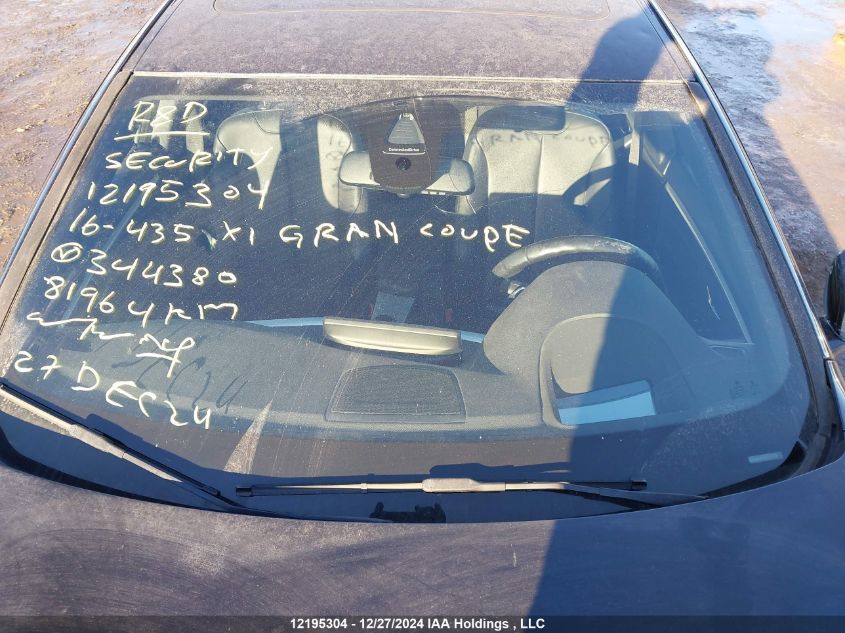 R&D
SECURITY
12195304
16-435 XI GRAN COUPE
344380
81964 KM
27 DEC 24
ConnectedDrive
12195304 - 12/27/2024 IAA Holdings , LLC